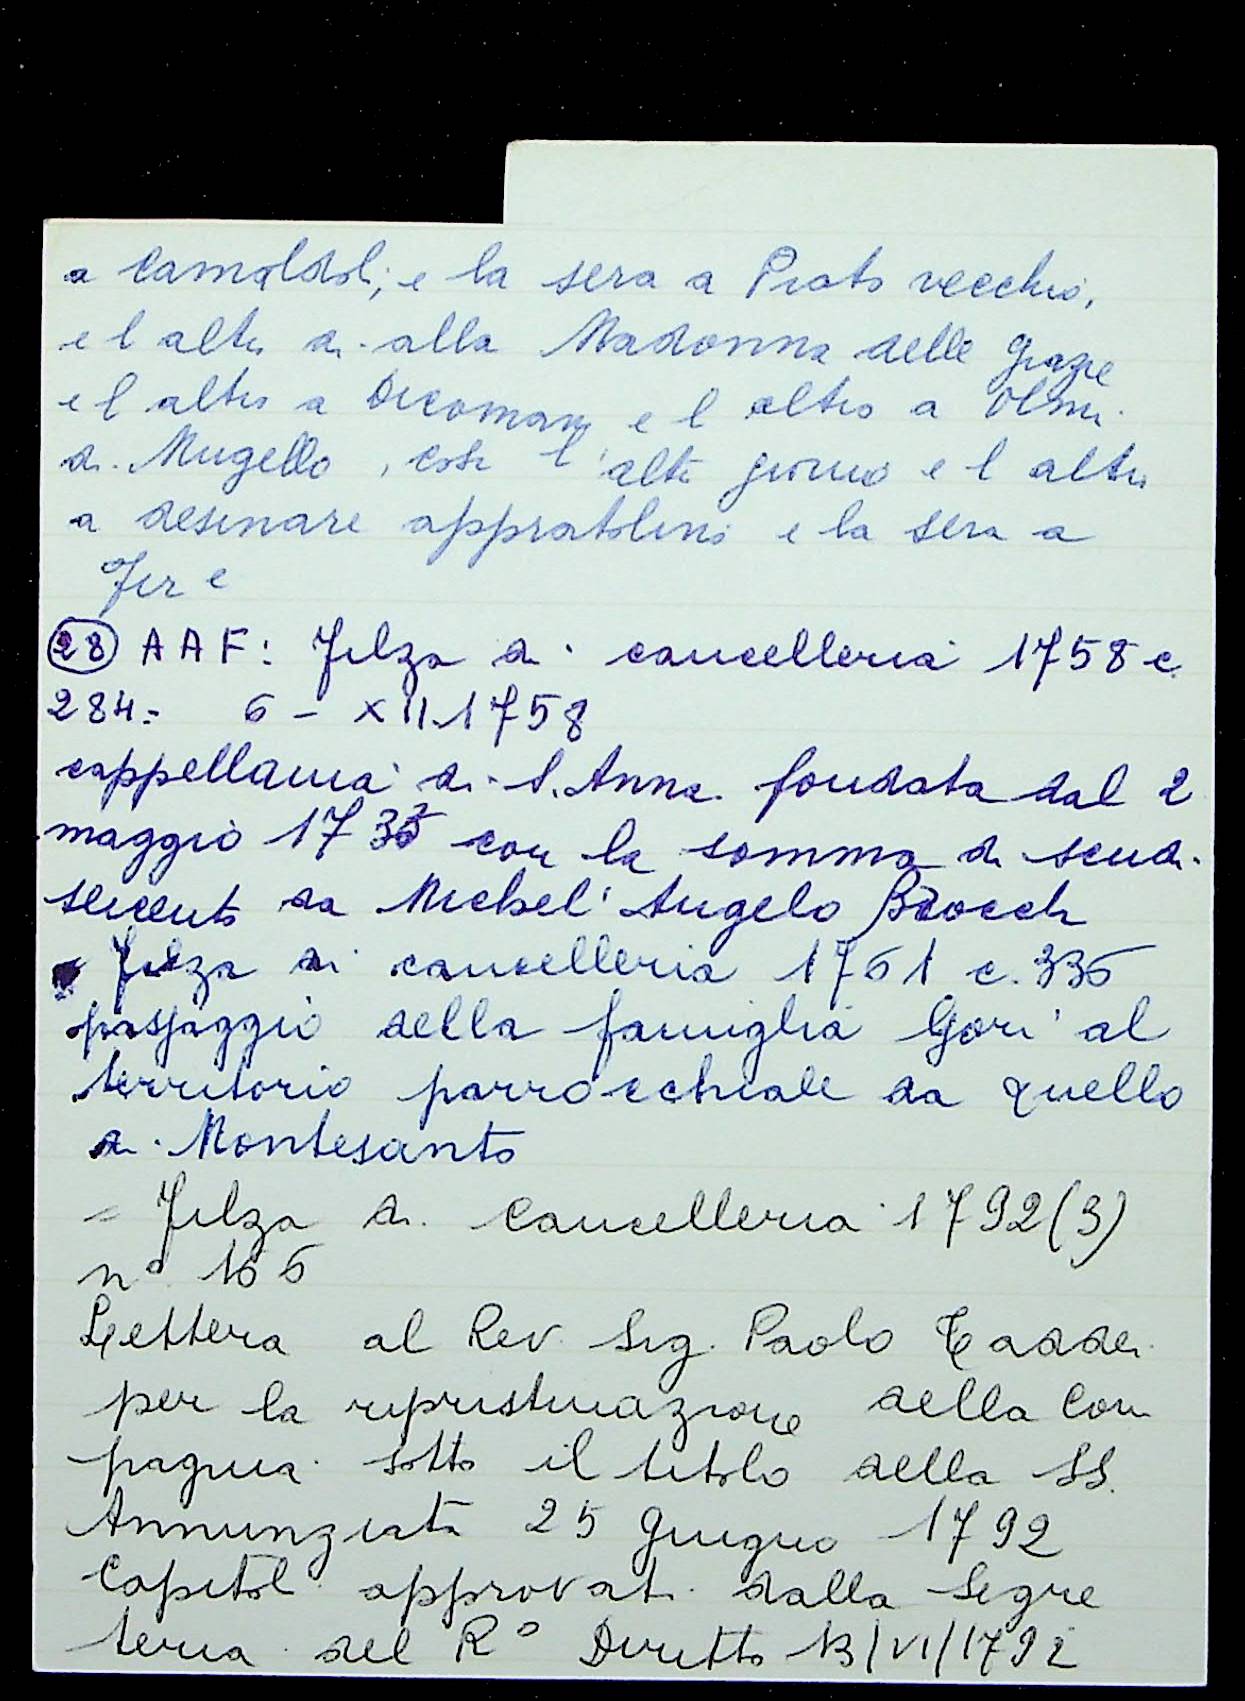 a Camaldoli; e la sera a Prato vecchio,
e l altro di alla Madonna delle Grazie
e l altro a Dicomani e l altro a Olmi
di Mugello, così l'altro giorno e l altro
a desinare appratolino e la sera a
Fire
28 AAF: Filza di cancelleria 1758 c.
284.- 6 - XII.1758
cappellania di S. Anna fondata dal 2
maggio 1735 con la somma di scudi
seicento da Michel' Angelo Brocchi
- Filza di cancelleria 1761 c. 336
passaggio della famiglia Gori al
territorio parrocchiale da quello
di Montesanto
= Filza di Cancelleria 1792(3)
n° 166
Lettera al Rev. Sig. Paolo Taddei
per la ripristinazione della Com
pagnia sotto il titolo della SS.
Annunziata 25 giugno 1792
Capitoli approvati dalla Segre
teria del R° Diritto 13/VI/1792